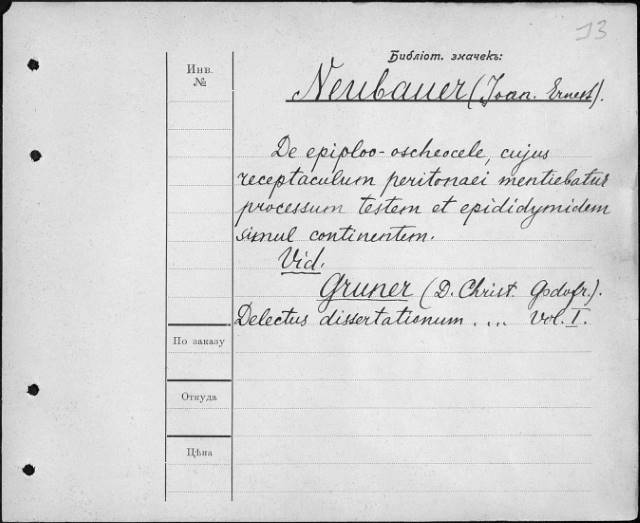 13
Библіот. значекъ:
Инв.
№
Neubauer (Joan. Ernest).
De epiploo-oscheocele, cujus
receptaculum peritonaei mentiebatur
processum testem et epididymidem
simul continentem.
Vid.
Gruner (D. Christ. Godofr.).
Delectus dissertationum .... Vol. I.
По заказу
Откуда
Цѣна